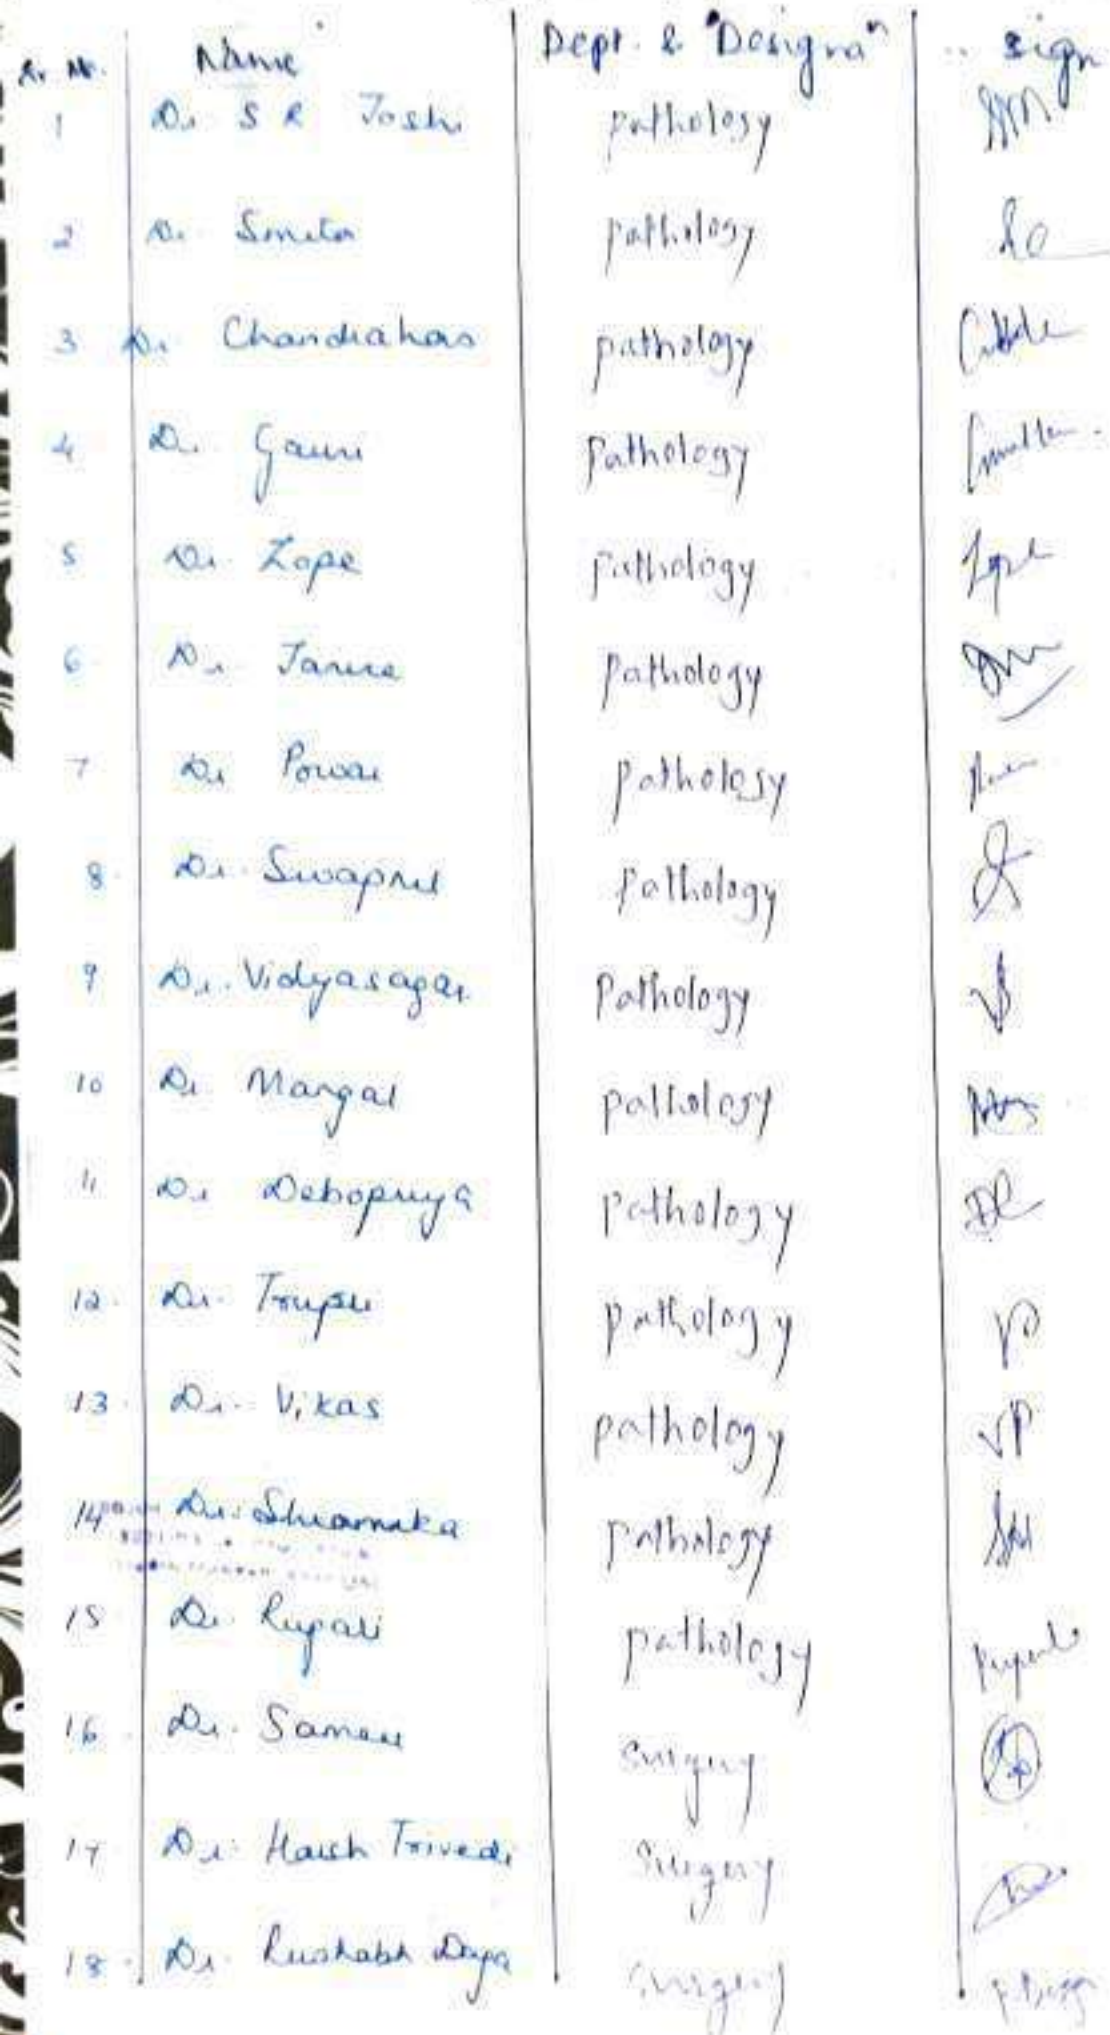 Sr. No. Name Dept. & Designaⁿ sign
1 Dr S R Joshi pathology
2 Dr. Smita pathology
3 Dr Chandrahas pathology
4 Dr. Gauri Pathology
5 Dr. Zope Pathology Zope
6 Dr. Pathology
7 Dr Powar pathology
8. Dr. Swapnil Pathology
9 Dr. Vidyasagar Pathology
10 Dr Mangal pathology
11 Dr Debopriya pathology
12. Dr. Trupti pathology
13. Dr. Vikas pathology VP
14 Dr. pathology
15 Dr. Rupali pathology Rupali
16. Dr. Sameer Surgery
17 Dr. Harsh Trivedi Surgery
18. Dr. Rushabh Daga Surgery